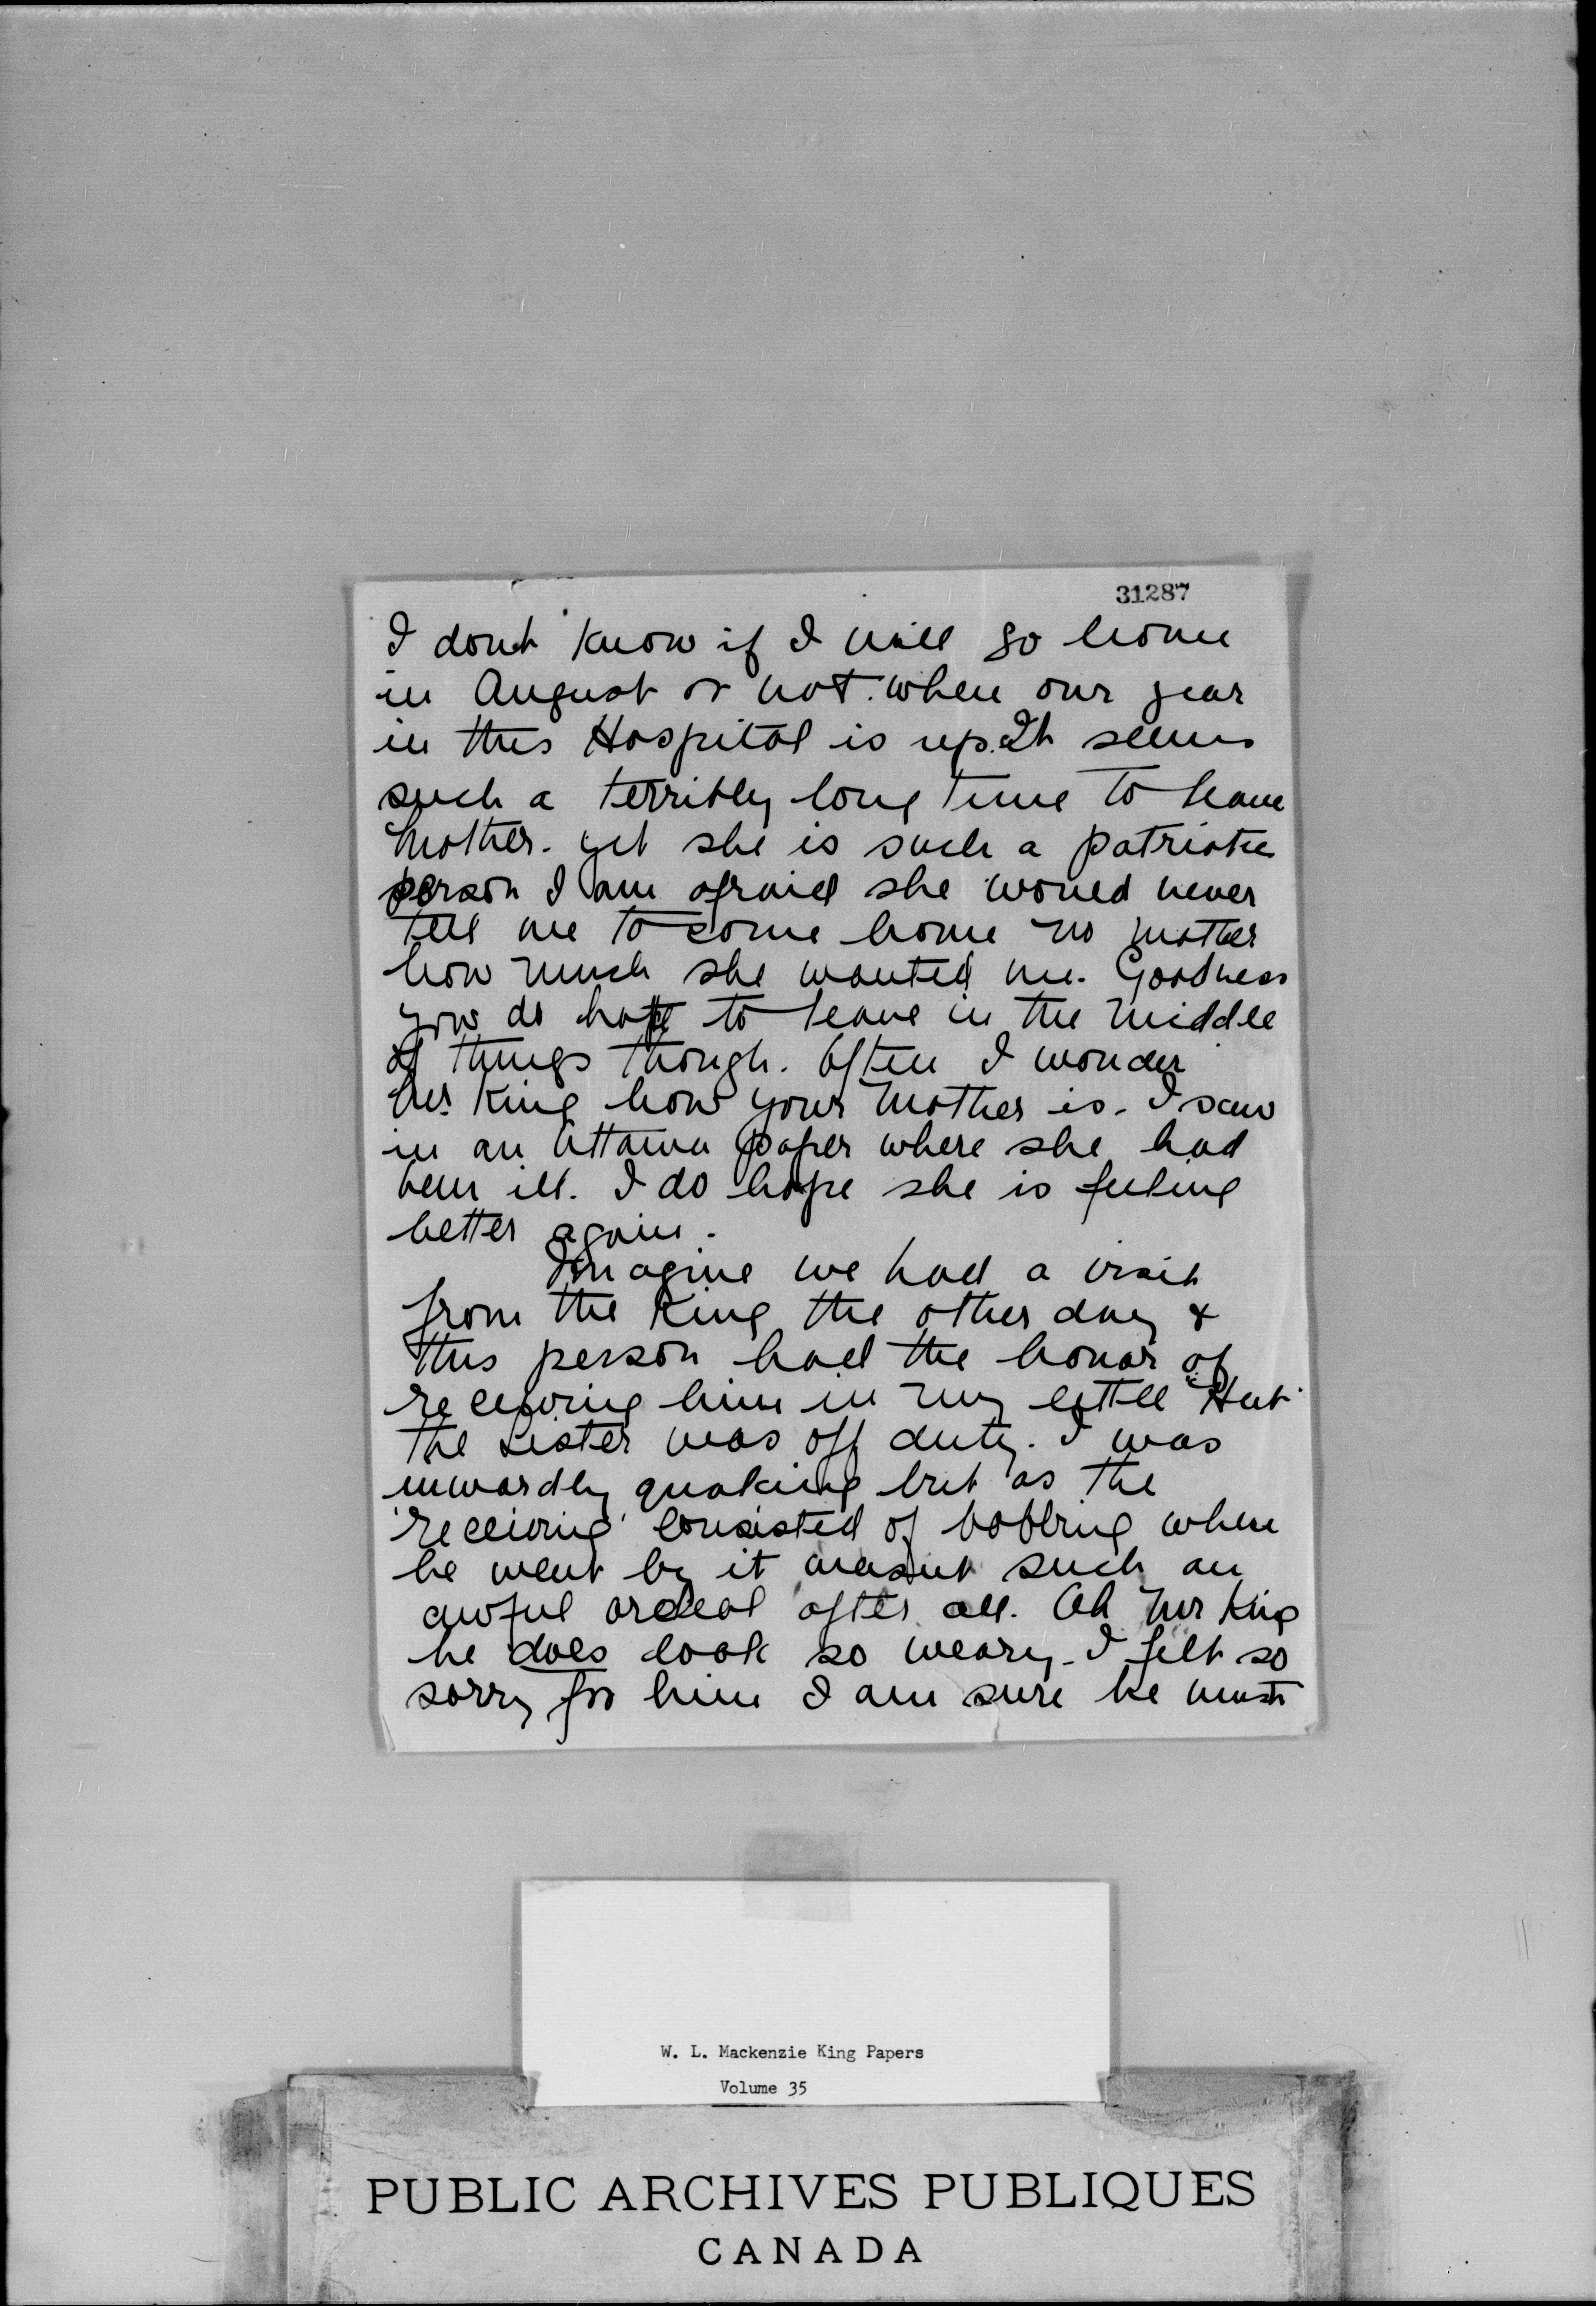 31287
I dont know if I will go home
in August or not. when our year
in this Hospital is up. It seems
such a terribly long time to leave
Mother. yet she is such a patriotic
person I am afraid she would never
tell me to come home no matter
how much she wanted me. Goodness
you do hate to leave in the middle
of things though. Often I wonder
Mr. King how your Mother is. I saw
in an Ottawa paper where she had
been ill. I do hope she is feeling
better again.
Imagine we had a visit
from the King the other day &
this person had the honor of
receiving him in my little "Hut"
The Sister was off duty. I was
inwardly quaking but as the
'receiving' consisted of bobbing when
he went by it wasnt such an
awful ordeal after all. Oh Mr King
he does look so weary - I felt so
sorry for him I am sure he must
W. L. Mackenzie King Papers
Volume 35
PUBLIC ARCHIVES PUBLIQUES
CANADA